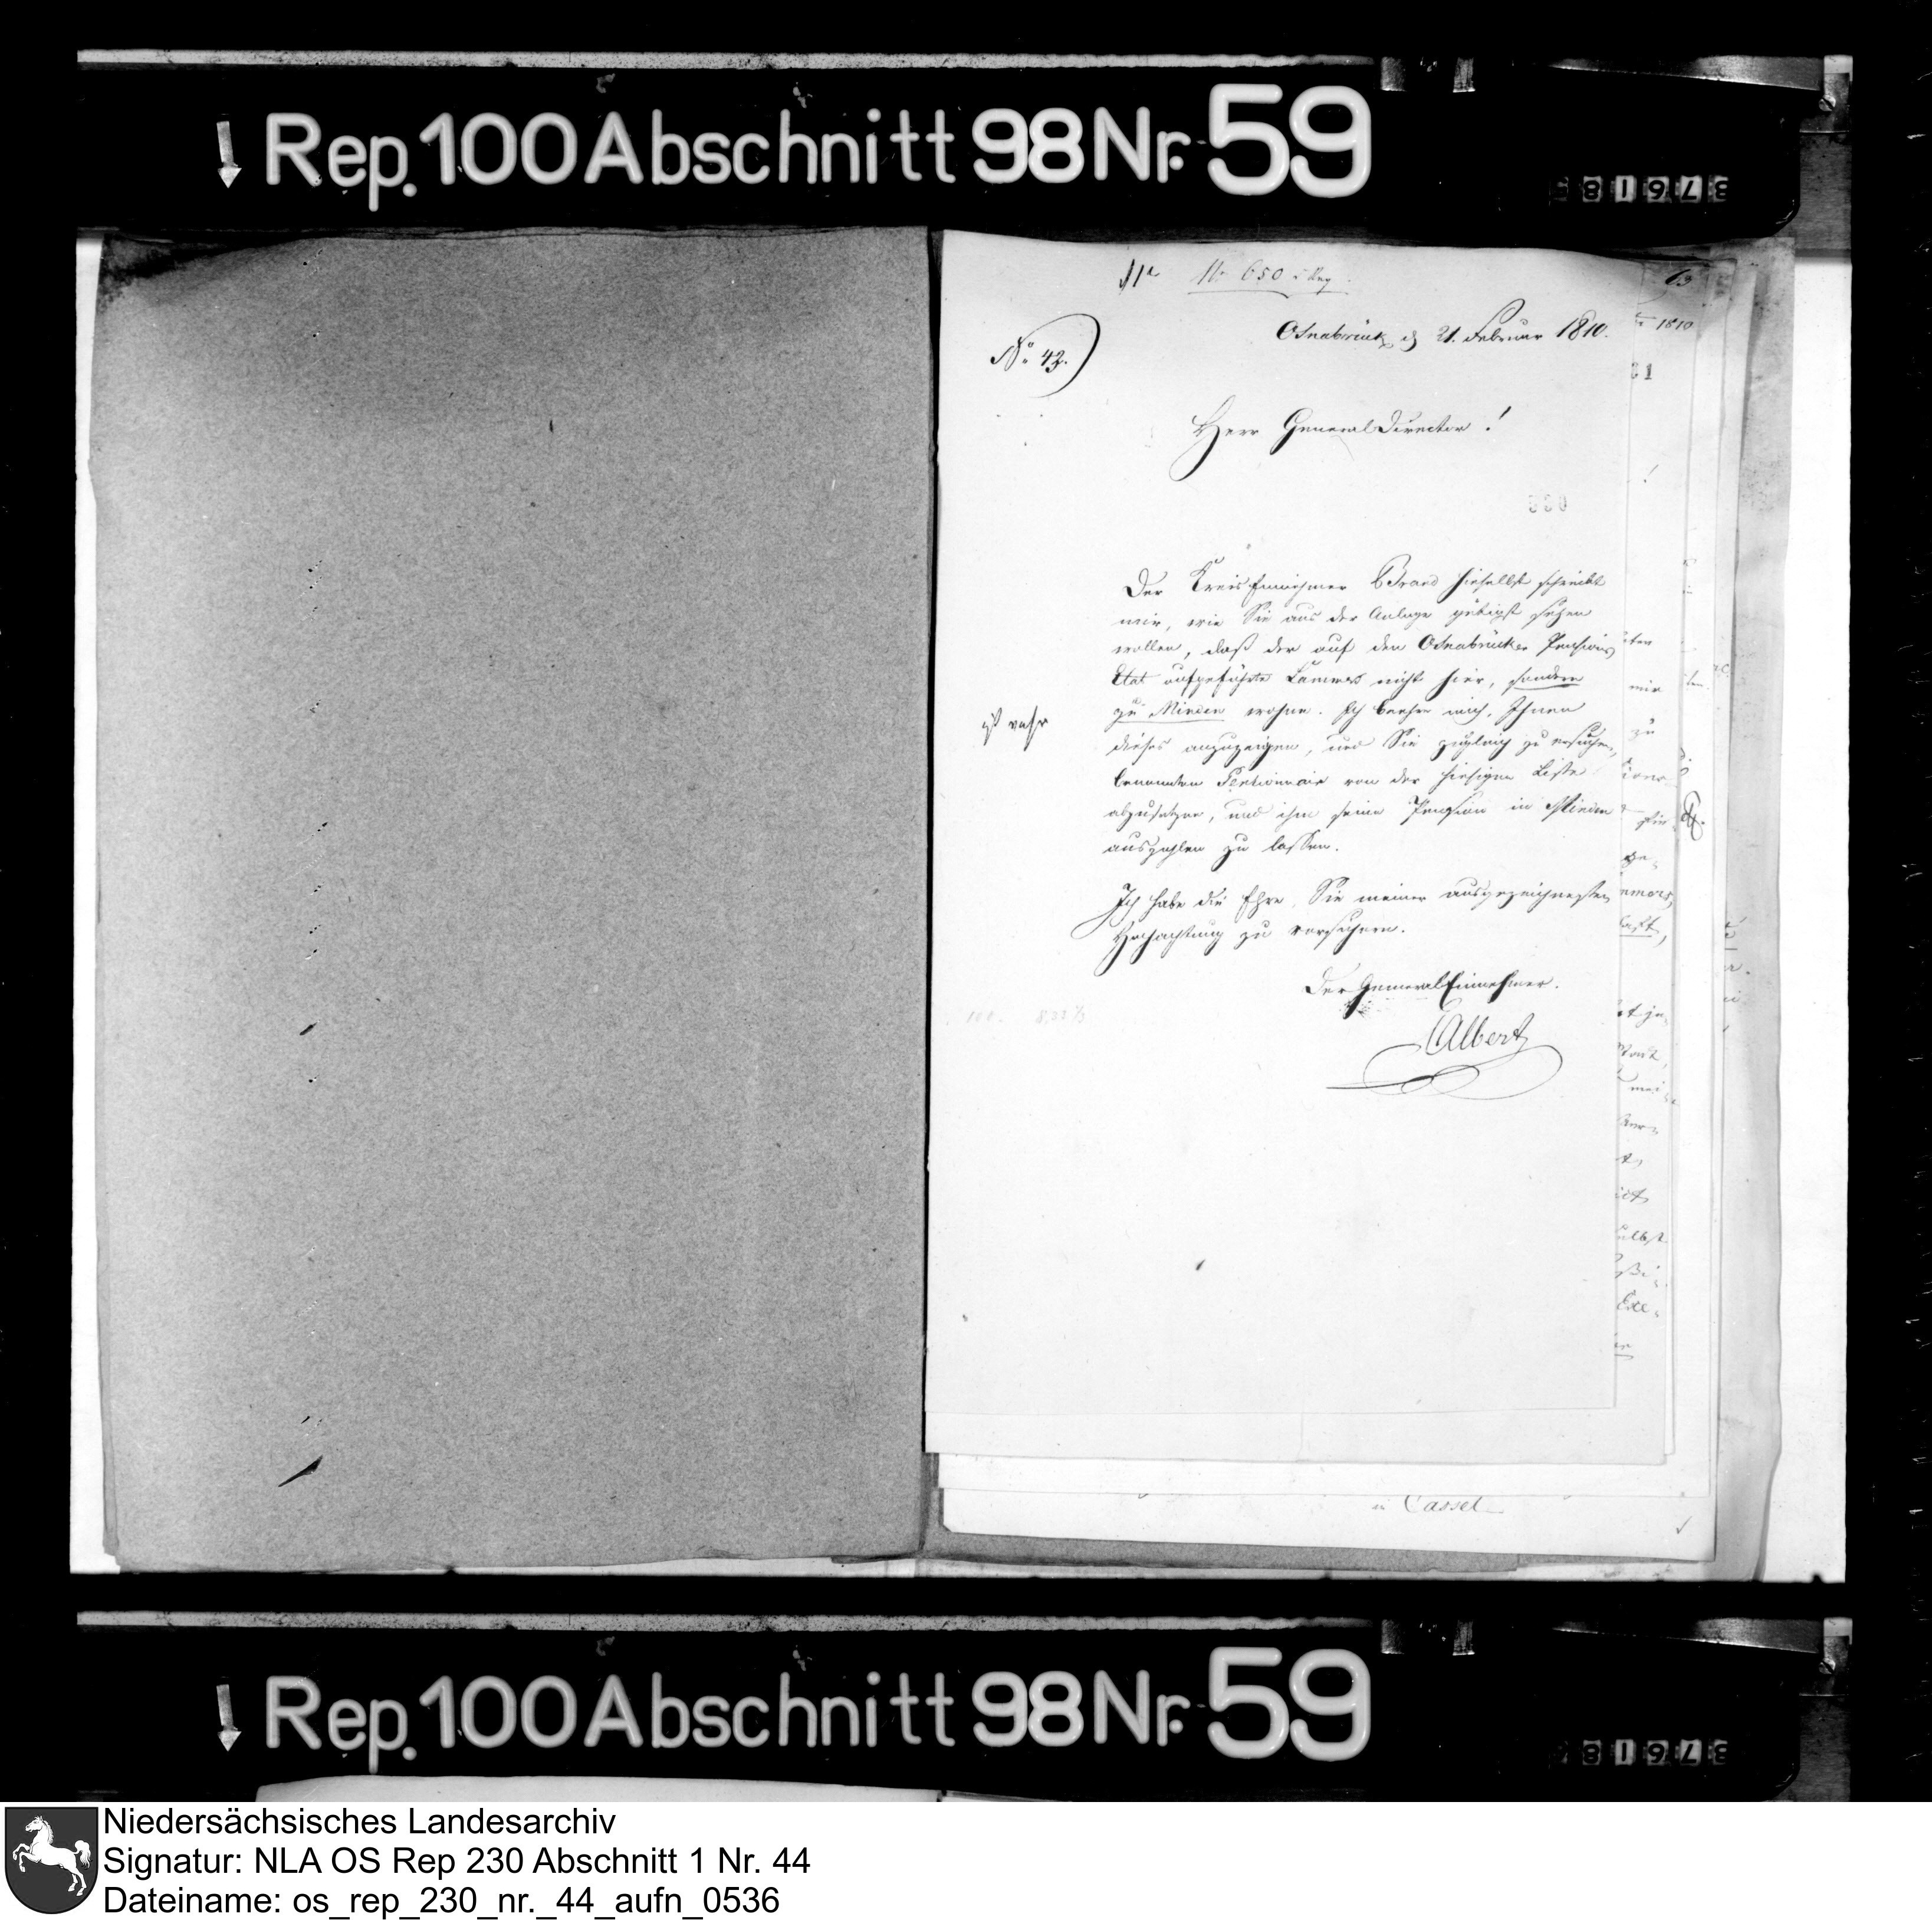 Rep. 100 Abschnitt 98 Nr. 59
No 650
13
No 42.
Osnabrück d 21. Februar 1810.
1810
Herr GeneralDirector!
Der KreisEinnehmer Brand hieselbst schreibt
mir, wie Sie aus der Anlage gütigst sehen
wollen, daß der auf den Osnabrücker Pensions
Etat aufgeführte Lammers nicht hier, sondern
zu Minden wohne. Ich beehre mich, Ihnen
ist wahr
dieses anzuzeigen, und Sie zugleich zu ersuchen,
benannten Pentionnair von der hiesigen Liste
abzusetzen, und ihm seine Pension in Minden
auszahlen zu lassen.
Ich habe die Ehre, Sie meiner ausgezeichnetsten
Hochachtung zu versichern.
Der GeneralEinnehmer.
Albert
in Cassel
Rep. 100 Abschnitt 98 Nr. 59
Niedersächsisches Landesarchiv
Signatur: NLA OS Rep 230 Abschnitt 1 Nr. 44
Dateiname: os_rep_230_nr._44_aufn_0536